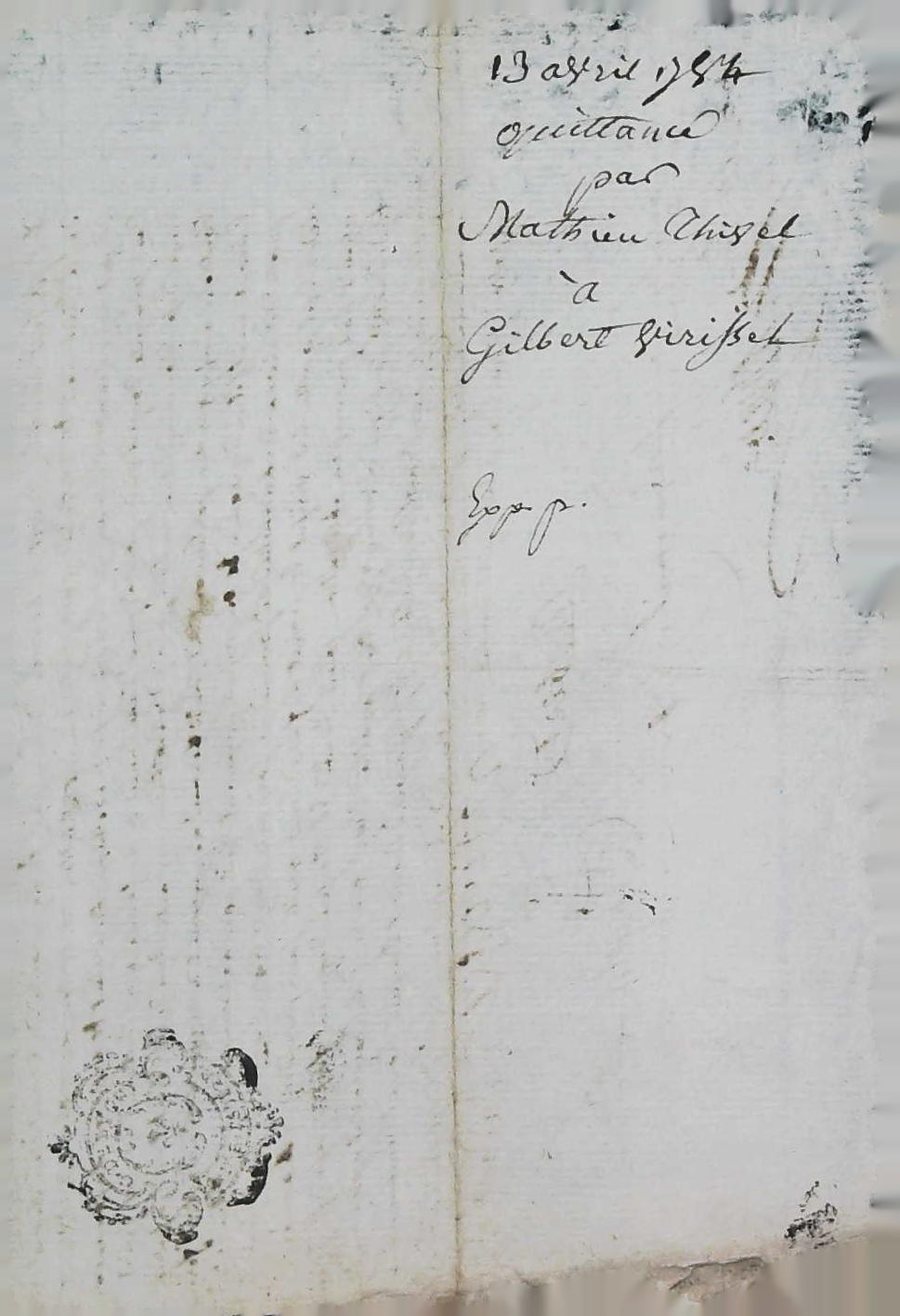 13 avril 1754
quittance
par
Mathieu Thivel
à
Gilbert Virisset
Exp. p.